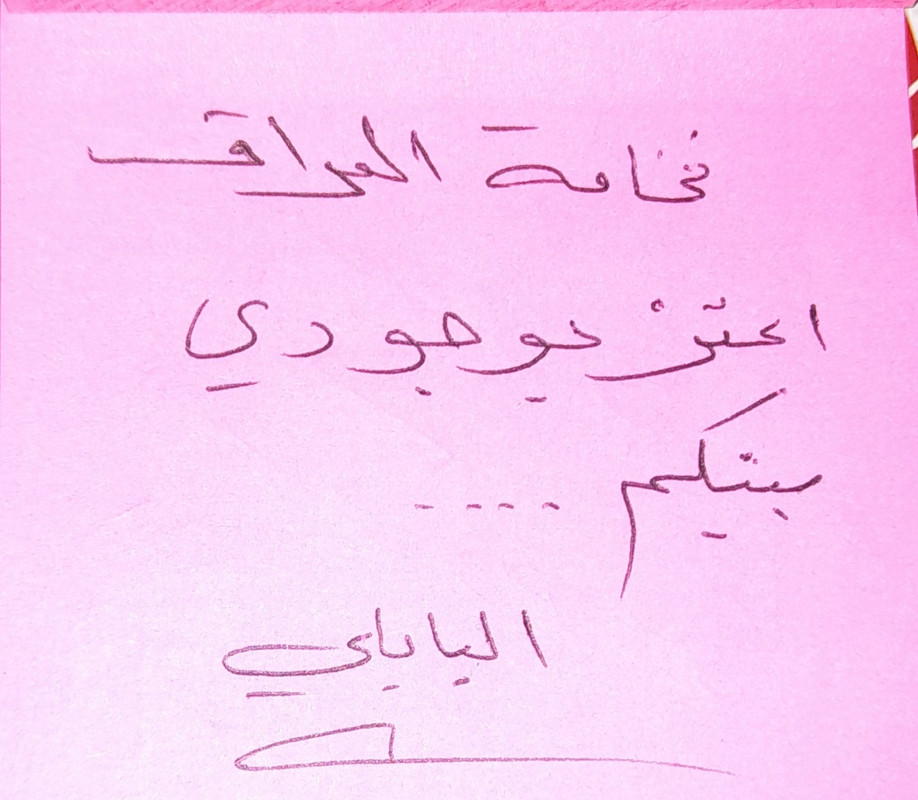 فخامة العراق
اعتز بوجودي
بينكم ....
البابلي